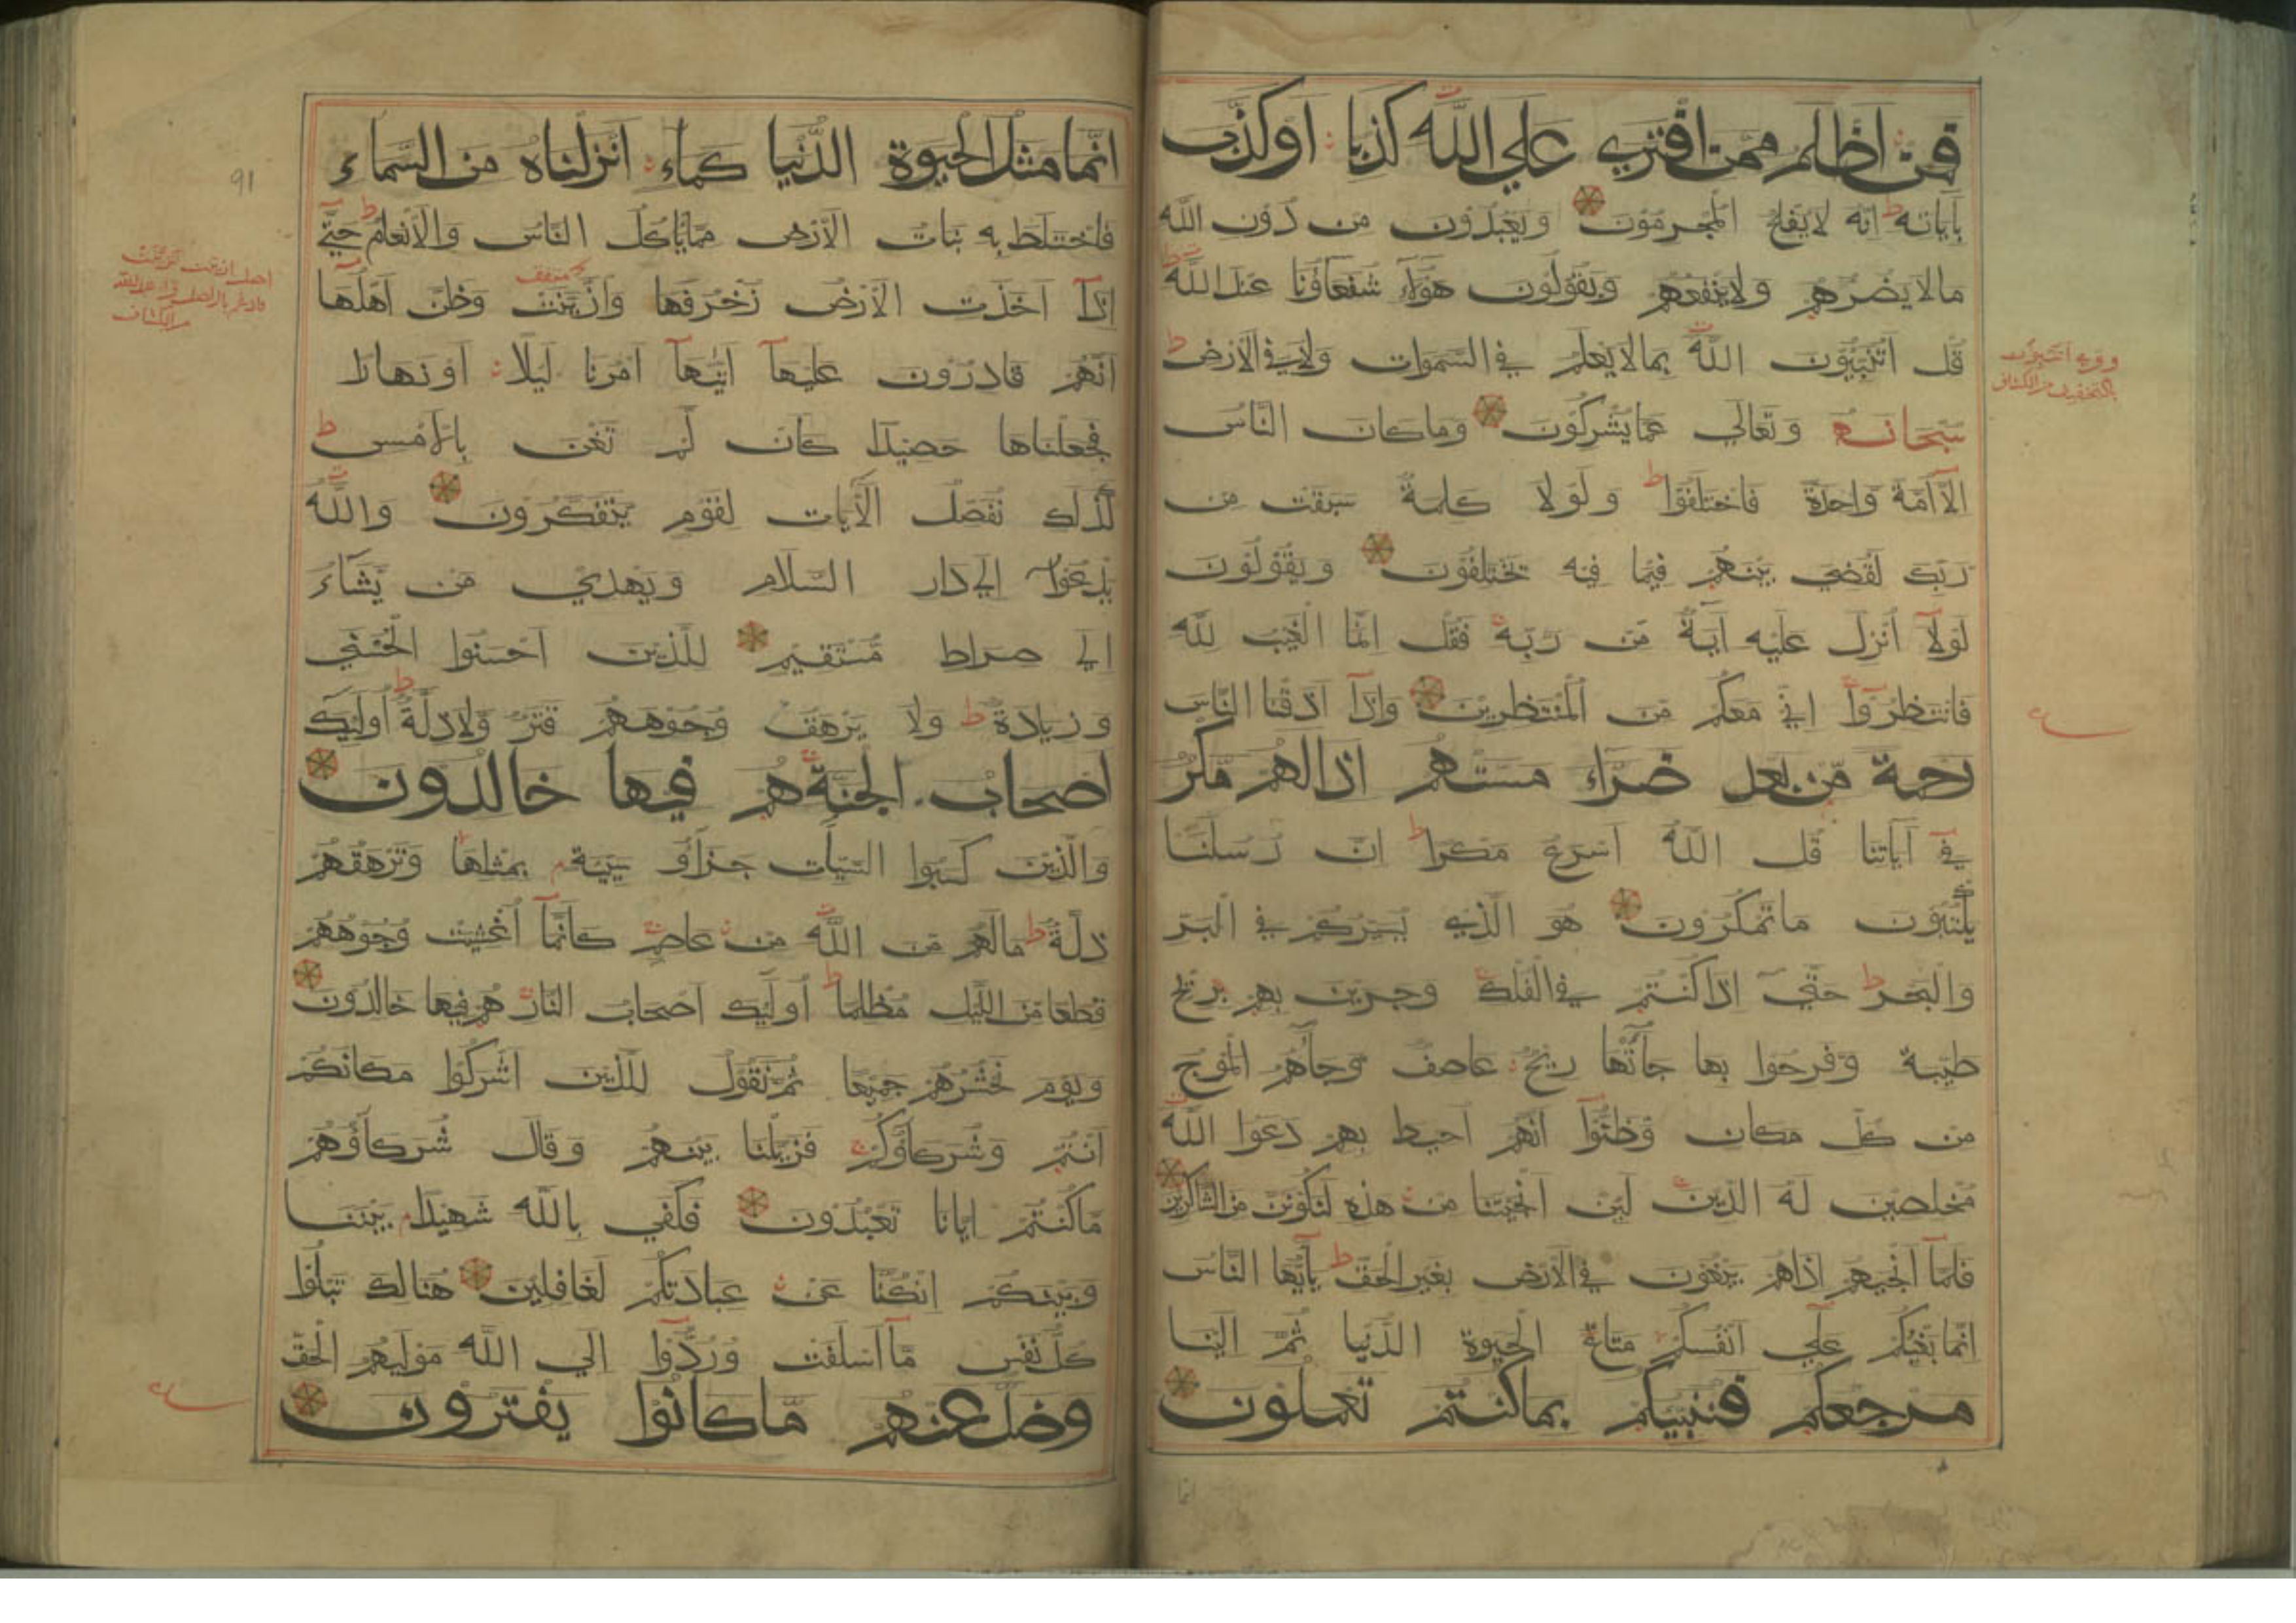 فمن اظلم ممن افتري علي الله كذبا او كذب
باياته انه لا يفلح المجرمون ويعبدون من دون الله
مالا يضرهم ولا ينفعهم ويقولون هؤلاء شفعاؤنا عند الله
قل اتنبئون الله بما لا يعلم في السموات ولا في الارض
سبحانه وتعالي عما يشركون وما كان الناس
الا امة واحدة فاختلفوا ولولا كلمة سبقت من
ربك لقضي بينهم فيما فيه يختلفون ويقولون
لولا انزل عليه آية من ربه فقل انما الغيب لله
فانتظروا اني معكم من المنتظرين واذا اذقنا الناس
رحمة من بعد ضراء مستهم اذا لهم مكر
في آياتنا قل الله اسرع مكرا ان رسلنا
يكتبون ما تمكرون هو الذي يسيركم في البر
والبحر حتي اذا كنتم في الفلك وجرين بهم بريح
طيبة وفرحوا بها جآءتها ريح عاصف وجآءهم الموج
من كل مكان وظنوا انهم احيط بهم دعوا الله
مخلصين له الدين لئن انجيتنا من هذه لنكونن من الشاكرين
فلما انجيهم اذا هم يبغون في الارض بغير الحق يآ ايها الناس
انما بغيكم علي انفسكم متاع الحيوة الدنيا ثم الينا
مرجعكم فننبئكم بما كنتم تعملون
انما
انما مثل الحيوة الدنيا كماء انزلناه من السماء
فاختلط به نبات الارض مما يأكل الناس والانعام حتي
اذا اخذت الارض زخرفها وازينت وظن اهلها
انهم قادرون عليها اتيها امرنا ليلا او نهارا
فجعلناها حصيدا كان لم تغن بالامس
كذلك نفصل الآيات لقوم يتفكرون والله
يدعوا الي دار السلام ويهدي من يشاء
الي صراط مستقيم للذين احسنوا الحسني
وزيادة ولا يرهق وجوههم قتر ولا ذلة اولئك
اصحاب الجنة هم فيها خالدون
والذين كسبوا السيئات جزاؤ سيئة بمثلها وترهقهم
ذلة مالهم من الله من عاصم كانما اغشيت وجوههم
قطعا من الليل مظلما اولئك اصحاب النار هم فيها خالدون
ويوم نحشرهم جميعا ثم نقول للذين اشركوا مكانكم
انتم وشركاؤكم فزيلنا بينهم وقال شركاؤهم
ما كنتم ايانا تعبدون فكفي بالله شهيدا بيننا
وبينكم ان كنا عن عبادتكم لغافلين هنالك تبلوا
كل نفس ما اسلفت وردوا الي الله موليهم الحق
وضل عنهم ما كانوا يفترون
91